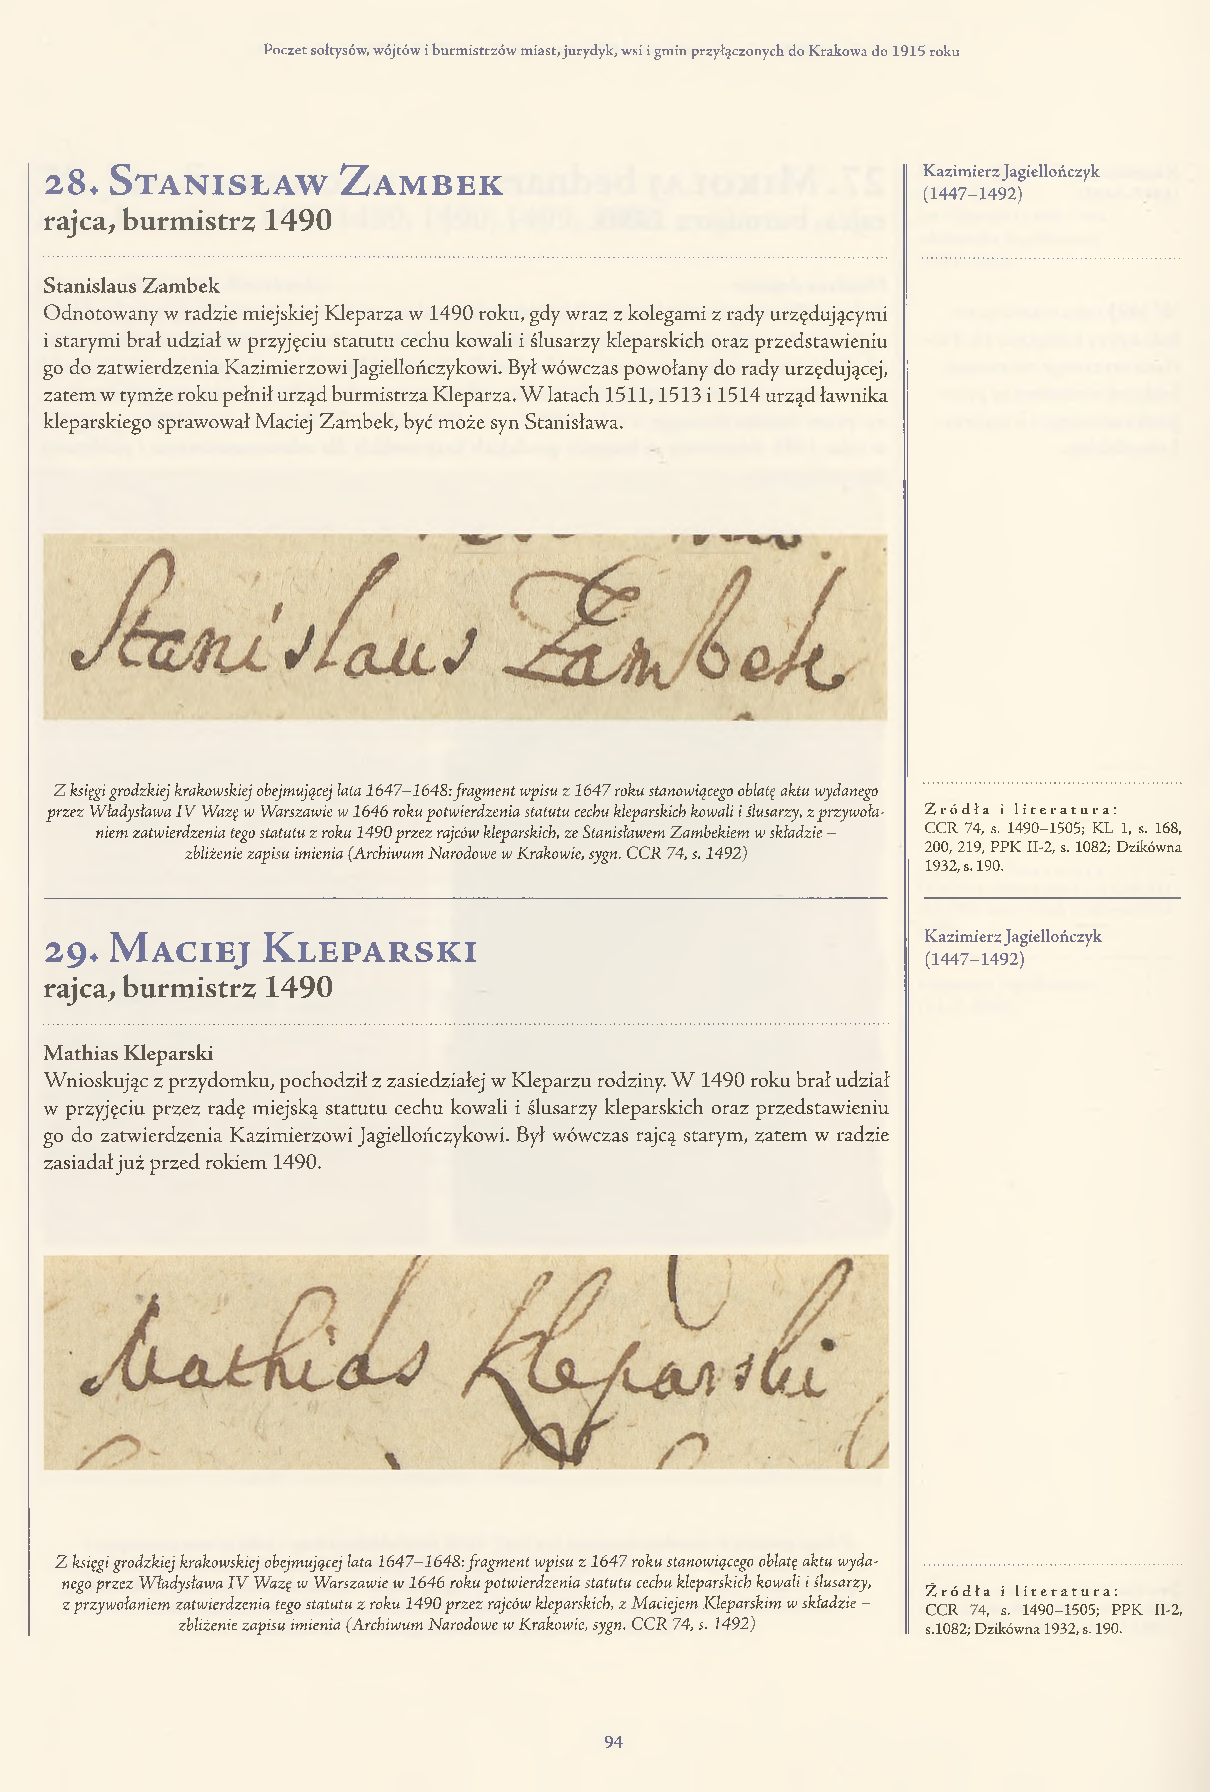 Poczet sołtysów, wójtów i burmistrzów miast, jurydyk, wsi i gmin przyłączonych do Krakowa do 1915 roku
28. Stanisław Zambek
rajca, burmistrz 1490
Stanislaus Zambek
Odnotowany w radzie miejskiej Kleparza w 1490 roku, gdy wraz z kolegami z rady urzędującymi
i starymi brał udział w przyjęciu statutu cechu kowali i ślusarzy kleparskich oraz przedstawieniu
go do zatwierdzenia Kazimierzowi Jagiellończykowi. Był wówczas powołany do rady urzędującej,
zatem w tymże roku pełnił urząd burmistrza Kleparza. W latach 1511, 1513 i 1514 urząd ławnika
kleparskiego sprawował Maciej Zambek, być może syn Stanisława.
Stanislaus Zambek
Z księgi grodzkiej krakowskiej obejmującej lata 1647–1648: fragment wpisu z 1647 roku stanowiącego oblatę aktu wydanego
przez Władysława IV Wazę w Warszawie w 1646 roku potwierdzenia statutu cechu kleparskich kowali i ślusarzy, z przywoła-
niem zatwierdzenia tego statutu z roku 1490 przez rajców kleparskich, ze Stanisławem Zambekiem w składzie –
zbliżenie zapisu imienia (Archiwum Narodowe w Krakowie, sygn. CCR 74, s. 1492)
Kazimierz Jagiellończyk
(1447–1492)
Źródła i literatura:
CCR 74, s. 1490–1505; KL 1, s. 168,
200, 219, PPK II-2, s. 1082; Dzikówna
1932, s. 190.
29. Maciej Kleparski
rajca, burmistrz 1490
Mathias Kleparski
Wnioskując z przydomku, pochodził z zasiedziałej w Kleparzu rodziny. W 1490 roku brał udział
w przyjęciu przez radę miejską statutu cechu kowali i ślusarzy kleparskich oraz przedstawieniu
go do zatwierdzenia Kazimierzowi Jagiellończykowi. Był wówczas rajcą starym, zatem w radzie
zasiadał już przed rokiem 1490.
Mathias Kleparski
Z księgi grodzkiej krakowskiej obejmującej lata 1647–1648: fragment wpisu z 1647 roku stanowiącego oblatę aktu wyda-
nego przez Władysława IV Wazę w Warszawie w 1646 roku potwierdzenia statutu cechu kleparskich kowali i ślusarzy,
z przywołaniem zatwierdzenia tego statutu z roku 1490 przez rajców kleparskich, z Maciejem Kleparskim w składzie –
zbliżenie zapisu imienia (Archiwum Narodowe w Krakowie, sygn. CCR 74, s. 1492)
Kazimierz Jagiellończyk
(1447–1492)
Źródła i literatura:
CCR 74, s. 1490–1505; PPK II-2,
s.1082; Dzikówna 1932, s. 190.
94